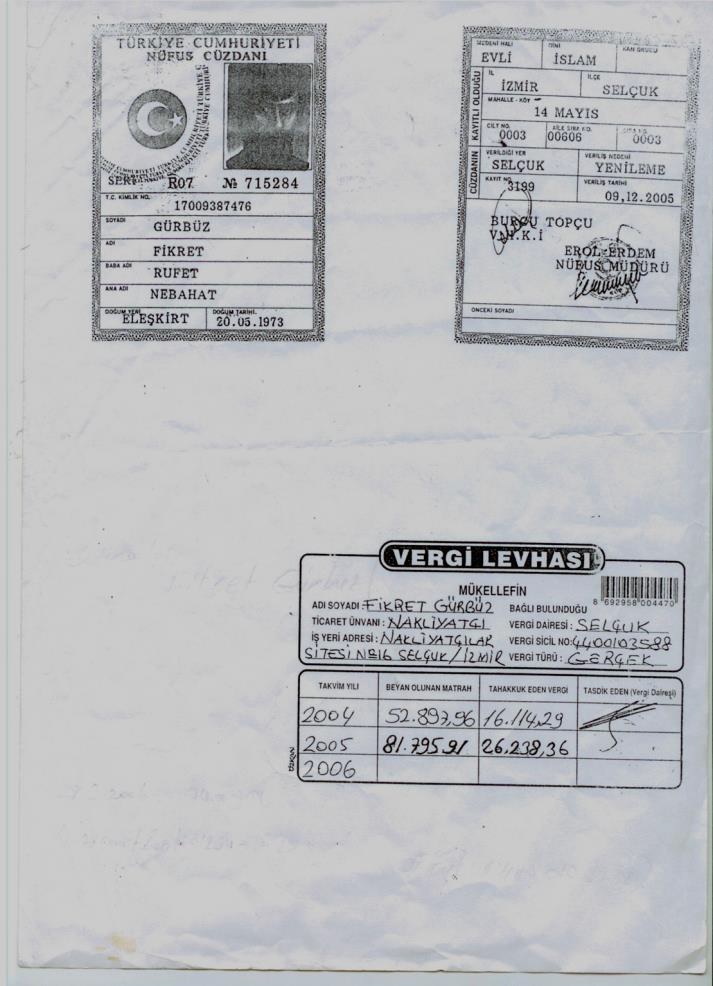 TÜRKİYE CUMHURİYETİ
NÜFUS CÜZDANI
SERİ R07 № 715284
T.C. KİMLİK NO. 17009387476
SOYADI GÜRBÜZ
ADI FİKRET
BABA ADI RUFET
ANA ADI NEBAHAT
DOĞUM YERİ ELEŞKİRT DOĞUM TARİHİ 20.05.1973
MEDENİ HALİ EVLİ DİNİ İSLAM KAN GRUBU
CÜZDANIN KAYITLI OLDUĞU
İL İZMİR İLÇE SELÇUK
MAHALLE - KÖY 14 MAYIS
CİLT NO. 0003 AİLE SIRA NO. 00606 SIRA NO. 0003
VERİLDİĞİ YER SELÇUK VERİLİŞ NEDENİ YENİLEME
KAYIT NO. 3199 VERİLİŞ TARİHİ 09.12.2005
BURCU TOPÇU
V.H.K.İ
EROL ERDEM
NÜFUS MÜDÜRÜ
ÖNCEKİ SOYADI
VERGİ LEVHASI
MÜKELLEFİN
8 692958 004470
ADI SOYADI : FİKRET GÜRBÜZ BAĞLI BULUNDUĞU
TİCARET ÜNVANI : NAKLİYATÇI VERGİ DAİRESİ : SELÇUK
İŞ YERİ ADRESİ : NAKLİYATÇILAR VERGİ SİCİL NO: 4400103588
SİTESİ N816 SELÇUK/İZMİR VERGİ TÜRÜ : GERÇEK
TAKVİM YILI BEYAN OLUNAN MATRAH TAHAKKUK EDEN VERGİ TASDİK EDEN (Vergi Dairesi)
2004 52.897,96 16.114,29
2005 81.795.91 26,238,36
2006